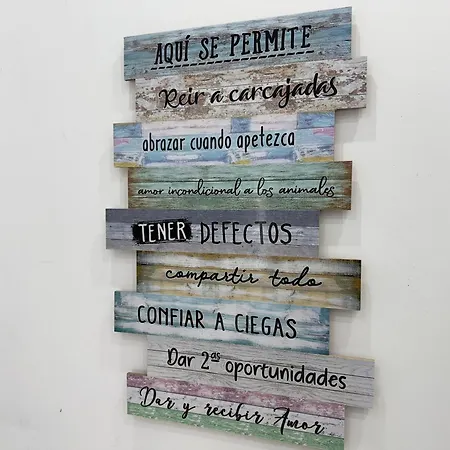 AQUÍ SE PERMITE
Reir a carcajadas
abrazar cuando apetezca
amor incondicional a los animales
TENER DEFECTOS
compartir todo
CONFIAR A CIEGAS
Dar 2ªs oportunidades
Dar y recibir Amor